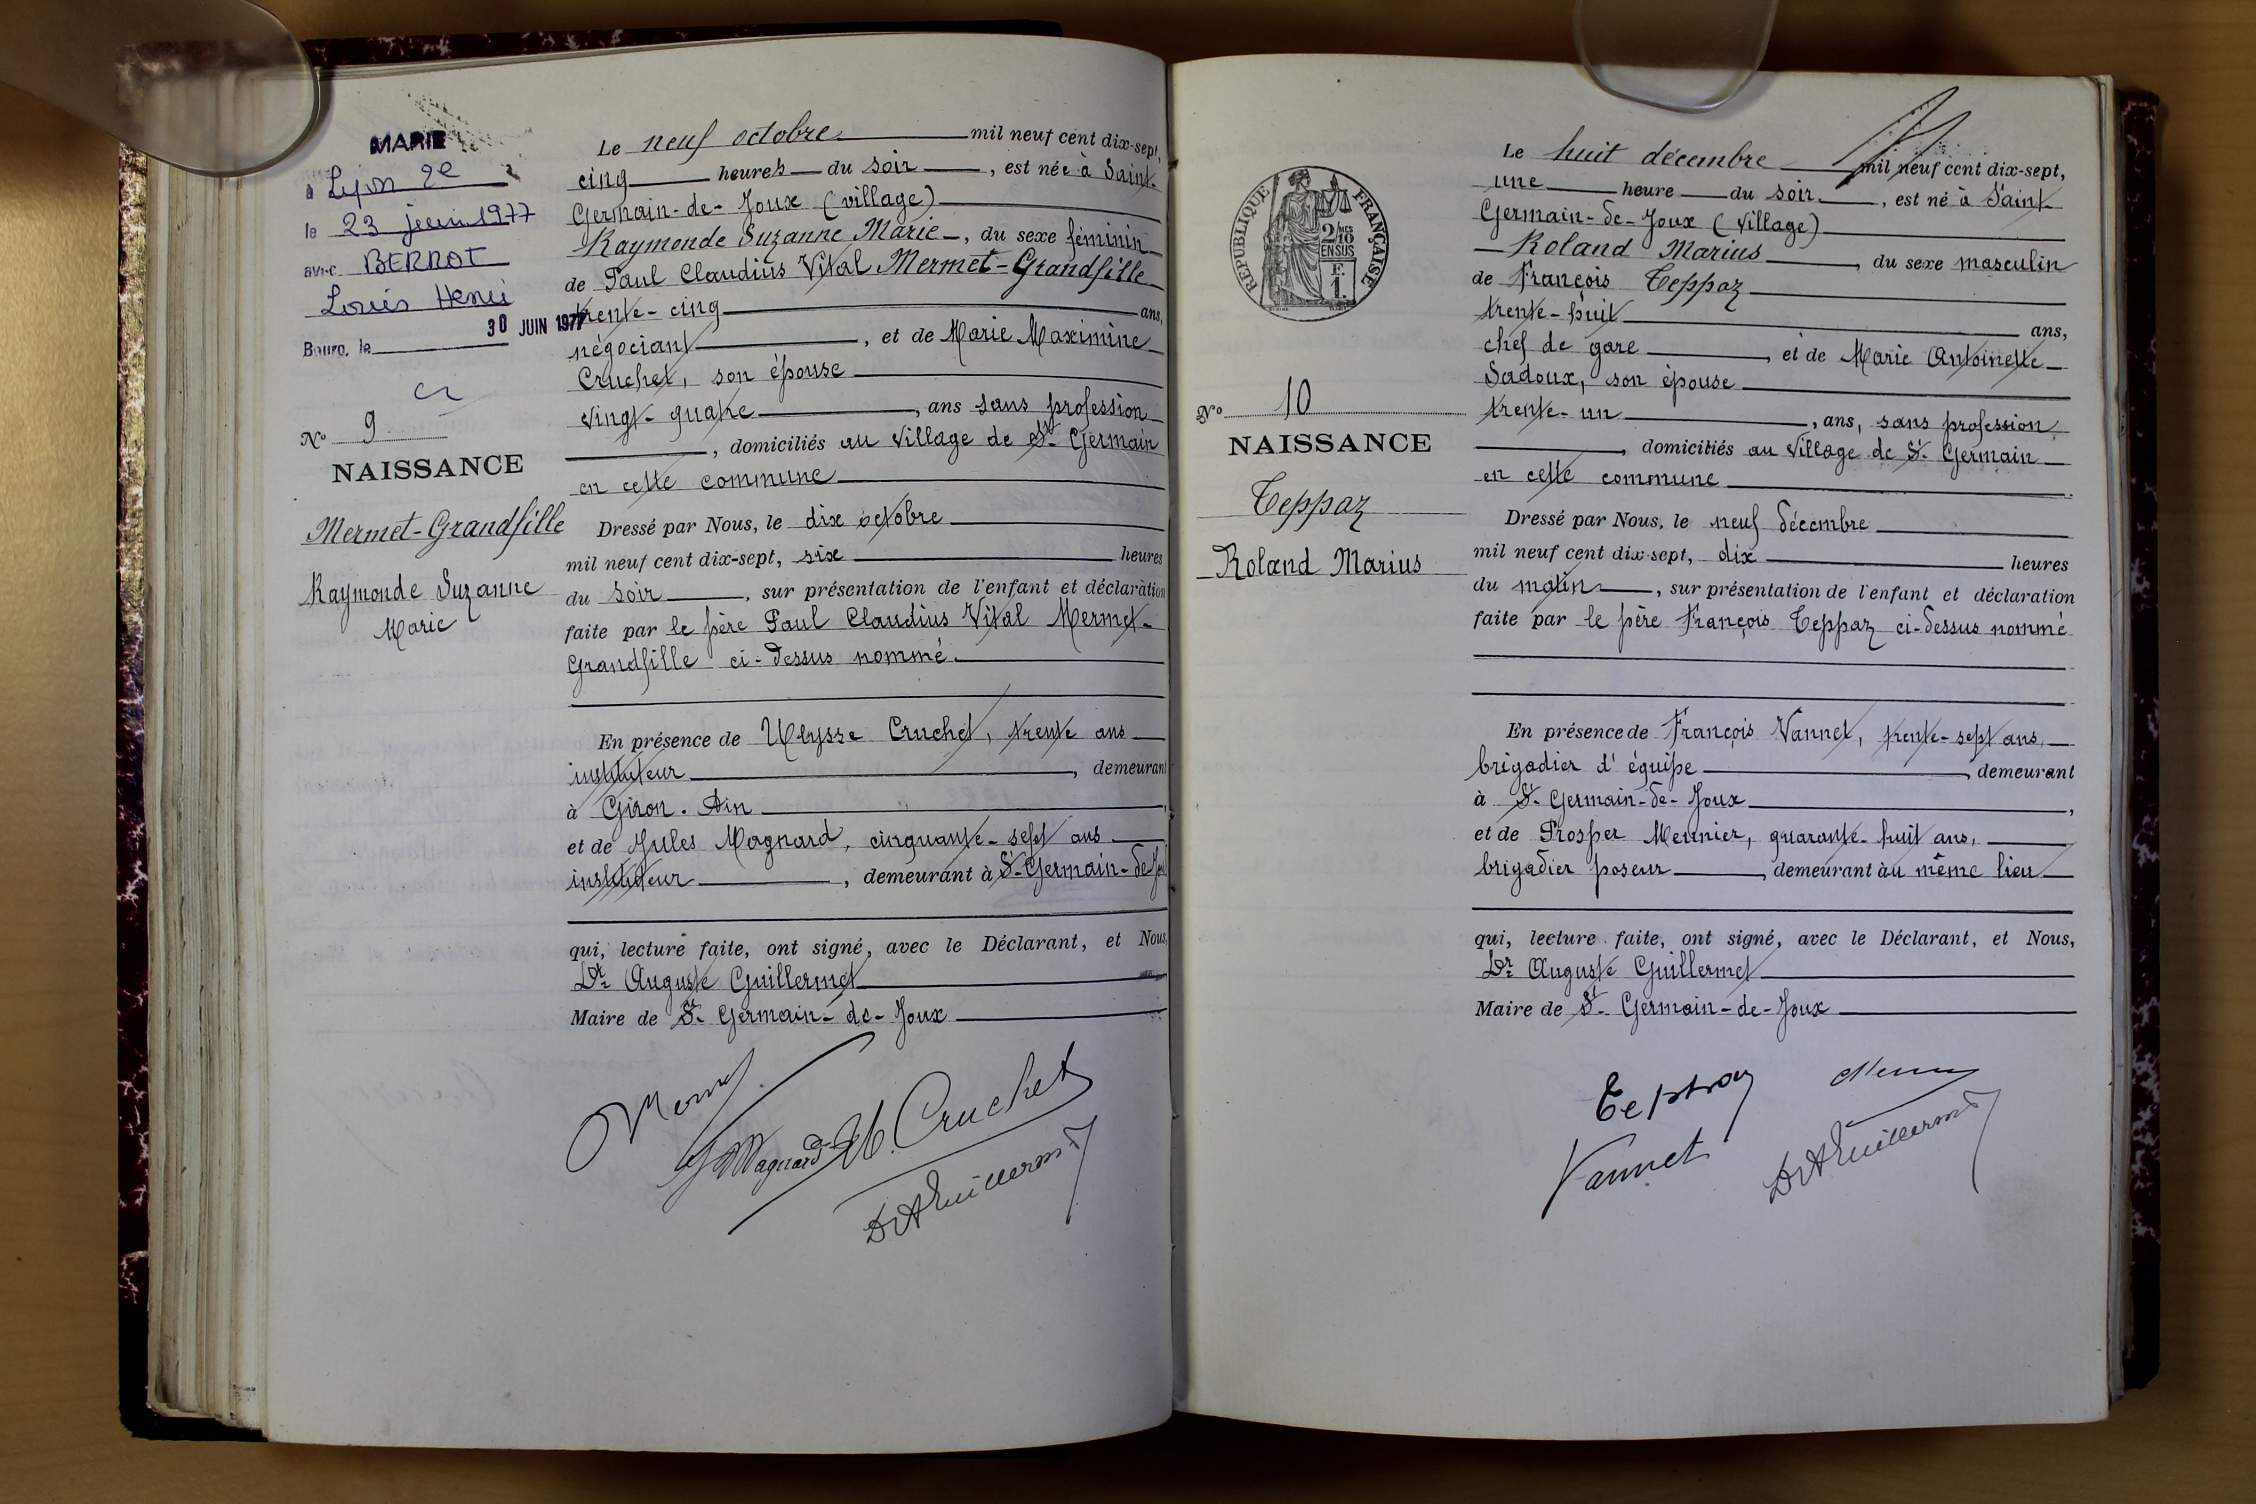 MARIÉ
à Lyon 2e
le 23 juin 1977
avec BERROT
Louis Henri
30 JUIN 1977
Bourg, le
No 9
NAISSANCE
Mermet-Grandfille
Raymonde Suzanne
Marie
Le neuf octobre mil neuf cent dix-sept,
cinq heures du soir, est née à Saint-
Germain-de-Joux (village)
Raymonde Suzanne Marie, du sexe féminin
de Paul Claudius Vital Mermet-Grandfille
trente-cinq ans,
négociant, et de Marie Maximine
Cruchet, son épouse
vingt-quatre, ans sans profession
, domiciliés au village de St Germain
en cette commune
Dressé par Nous, le dix octobre
mil neuf cent dix-sept, six heures
du soir, sur présentation de l'enfant et déclaration
faite par le père Paul Claudius Vital Mermet-
Grandfille ci-dessus nommé.
En présence de Ulysse Cruchet, trente ans
instituteur, demeurant
à Giron. Ain,
et de Jules Magnard, cinquante-sept ans
instituteur, demeurant à St-Germain-de-Joux
qui, lecture faite, ont signé, avec le Déclarant, et Nous,
Dr Auguste Guillermet
Maire de St-Germain-de-Joux
Mermet
J Magnard U. Cruchet
Dr A Guillermet
REPUBLIQUE FRANÇAISE
2/10 MES
EN SUS
F.
1.
No 10
NAISSANCE
Teppaz
Roland Marius
Le huit décembre mil neuf cent dix-sept,
une heure du soir, est né à Saint-
Germain-de-Joux (village)
Roland Marius, du sexe masculin
de François Teppaz
trente-huit ans,
chef de gare, et de Marie Antoinette
Sadoux, son épouse
trente-un, ans, sans profession
, domiciliés au village de St-Germain
en cette commune
Dressé par Nous, le neuf décembre
mil neuf cent dix-sept, dix heures
du matin, sur présentation de l'enfant et déclaration
faite par le père François Teppaz ci-dessus nommé
En présence de François Vannet, trente-sept ans,
brigadier d'équipe, demeurant
à St-Germain-de-Joux,
et de Prosper Meunier, quarante-huit ans,
brigadier poseur, demeurant au même lieu
qui, lecture faite, ont signé, avec le Déclarant, et Nous,
Dr Auguste Guillermet
Maire de St-Germain-de-Joux
Teppaz
Vannet
Dr A Guillermet